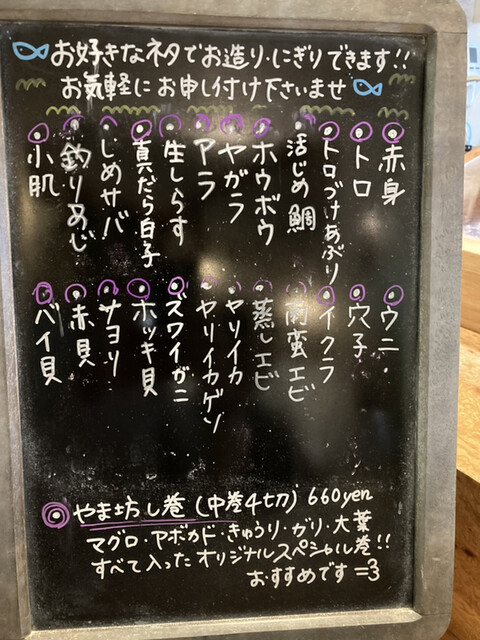 お好きなネタでお造り・にぎりできます!!
お気軽にお申し付け下さいませ
赤身
トロ
トロづけあぶり
活じめ鯛
ホウボウ
ヤガラ
アラ
生しらす
真だら白子
しめサバ
釣りあじ
小肌
ウニ
穴子
イクラ
南蛮エビ
蒸しエビ
ヤリイカ
ヤリイカゲソ
ズワイガニ
ホッキ貝
サヨリ
赤貝
バイ貝
やま坊し巻(中巻4切) 660yen
マグロ・アボカド・きゅうり・ガリ・大葉
すべて入ったオリジナルスペシャル巻!!
おすすめです=3